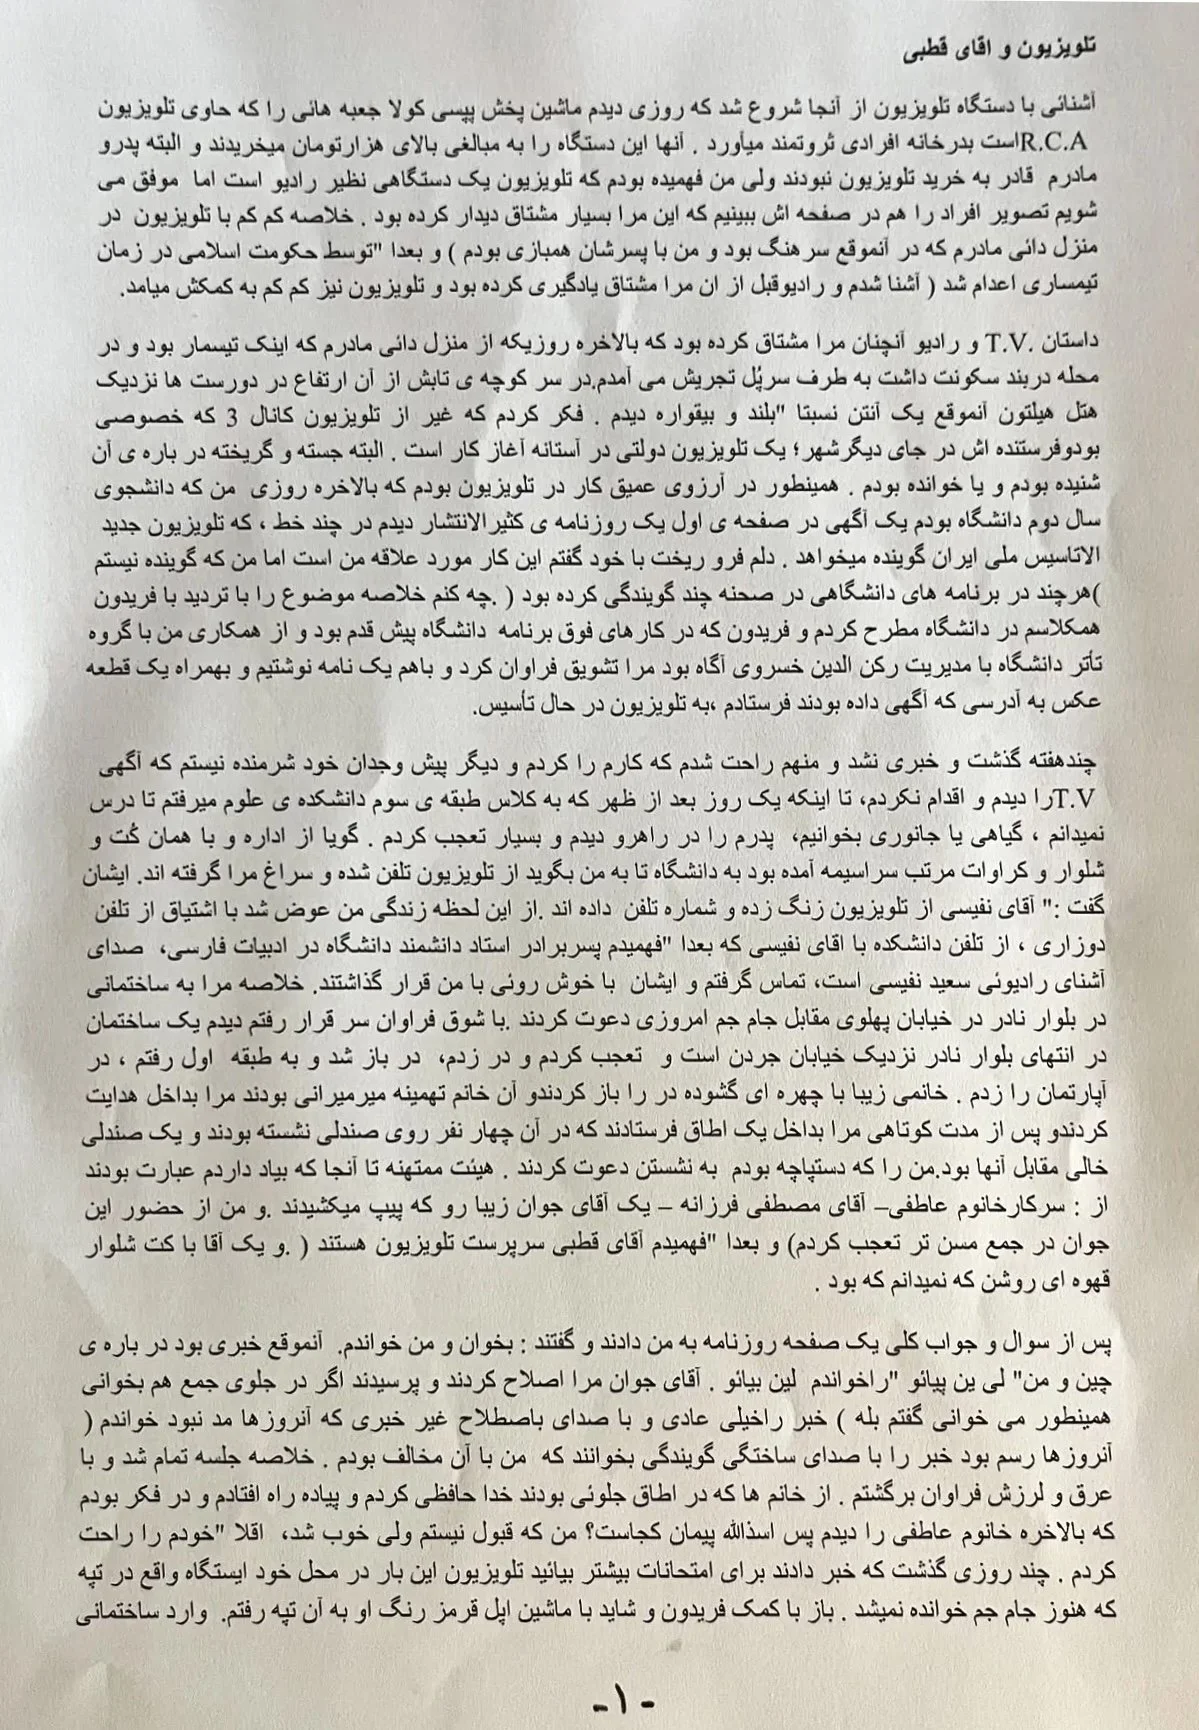 تلویزیون و اقای قطبی
آشنائی با دستگاه تلویزیون از آنجا شروع شد که روزی دیدم ماشین پخش پپسی کولا جعبه هائی را که حاوی تلویزیون
R.C.Aاست بدرخانه افرادی ثروتمند میأورد . آنها این دستگاه را به مبالغی بالای هزارتومان میخریدند و البته پدرو
مادرم قادر به خرید تلویزیون نبودند ولی من فهمیده بودم که تلویزیون یک دستگاهی نظیر رادیو است اما موفق می
شویم تصویر افراد را هم در صفحه اش ببینیم که این مرا بسیار مشتاق دیدار کرده بود . خلاصه کم کم با تلویزیون در
منزل دائی مادرم که در آنموقع سرهنگ بود و من با پسرشان همبازی بودم ) و بعدا "توسط حکومت اسلامی در زمان
تیمساری اعدام شد ( آشنا شدم و رادیوقبل از ان مرا مشتاق یادگیری کرده بود و تلویزیون نیز کم کم به کمکش میامد.
داستان .T.V و رادیو آنچنان مرا مشتاق کرده بود که بالاخره روزیکه از منزل دائی مادرم که اینک تیسمار بود و در
محله دربند سکونت داشت به طرف سرپُل تجریش می آمدم.در سر کوچه ی تابش از آن ارتفاع در دورست ها نزدیک
هتل هیلتون آنموقع یک آنتن نسبتا "بلند و بیقواره دیدم . فکر کردم که غیر از تلویزیون کانال 3 که خصوصی
بودوفرستنده اش در جای دیگرشهر؛ یک تلویزیون دولتی در آستانه آغاز کار است . البته جسته و گریخته در باره ی آن
شنیده بودم و یا خوانده بودم . همینطور در آرزوی عمیق کار در تلویزیون بودم که بالاخره روزی من که دانشجوی
سال دوم دانشگاه بودم یک آگهی در صفحه ی اول یک روزنامه ی کثیرالانتشار دیدم در چند خط ، که تلویزیون جدید
الاتاسیس ملی ایران گوینده میخواهد . دلم فرو ریخت با خود گفتم این کار مورد علاقه من است اما من که گوینده نیستم
)هرچند در برنامه های دانشگاهی در صحنه چند گویندگی کرده بود ( .چه کنم خلاصه موضوع را با تردید با فریدون
همکلاسم در دانشگاه مطرح کردم و فریدون که در کارهای فوق برنامه دانشگاه پیش قدم بود و از همکاری من با گروه
تأتر دانشگاه با مدیریت رکن الدین خسروی آگاه بود مرا تشویق فراوان کرد و باهم یک نامه نوشتیم و بهمراه یک قطعه
عکس به آدرسی که آگهی داده بودند فرستادم ،به تلویزیون در حال تأسیس.
چندهفته گذشت و خبری نشد و منهم راحت شدم که کارم را کردم و دیگر پیش وجدان خود شرمنده نیستم که آگهی
T.Vرا دیدم و اقدام نکردم، تا اینکه یک روز بعد از ظهر که به کلاس طبقه ی سوم دانشکده ی علوم میرفتم تا درس
نمیدانم ، گیاهی یا جانوری بخوانیم، پدرم را در راهرو دیدم و بسیار تعجب کردم . گویا از اداره و با همان کُت و
شلوار و کراوات مرتب سراسیمه آمده بود به دانشگاه تا به من بگوید از تلویزیون تلفن شده و سراغ مرا گرفته اند. ایشان
گفت :" آقای نفیسی از تلویزیون زنگ زده و شماره تلفن داده اند .از این لحظه زندگی من عوض شد با اشتیاق از تلفن
دوزاری ، از تلفن دانشکده با اقای نفیسی که بعدا "فهمیدم پسربرادر استاد دانشمند دانشگاه در ادبیات فارسی، صدای
آشنای رادیوئی سعید نفیسی است، تماس گرفتم و ایشان با خوش روئی با من قرار گذاشتند. خلاصه مرا به ساختمانی
در بلوار نادر در خیابان پهلوی مقابل جام جم امروزی دعوت کردند .با شوق فراوان سر قرار رفتم دیدم یک ساختمان
در انتهای بلوار نادر نزدیک خیابان جردن است و تعجب کردم و در زدم، در باز شد و به طبقه اول رفتم ، در
آپارتمان را زدم . خانمی زیبا با چهره ای گشوده در را باز کردندو آن خانم تهمینه میرمیرانی بودند مرا بداخل هدایت
کردندو پس از مدت کوتاهی مرا بداخل یک اطاق فرستادند که در آن چهار نفر روی صندلی نشسته بودند و یک صندلی
خالی مقابل آنها بود.من را که دستپاچه بودم به نشستن دعوت کردند . هیئت ممتهنه تا آنجا که بیاد داردم عبارت بودند
از : سرکارخانوم عاطفی– آقای مصطفی فرزانه – یک آقای جوان زیبا رو که پیپ میکشیدند .و من از حضور این
جوان در جمع مسن تر تعجب کردم) و بعدا "فهمیدم آقای قطبی سرپرست تلویزیون هستند ( .و یک آقا با کت شلوار
قهوه ای روشن که نمیدانم که بود .
پس از سوال و جواب کلی یک صفحه روزنامه به من دادند و گفتند : بخوان و من خواندم. آنموقع خبری بود در باره ی
چین و من" لی ین پیائو "راخواندم لین بیائو . آقای جوان مرا اصلاح کردند و پرسیدند اگر در جلوی جمع هم بخوانی
همینطور می خوانی گفتم بله ) خبر راخیلی عادی و با صدای باصطلاح غیر خبری که آنروزها مد نبود خواندم (
آنروزها رسم بود خبر را با صدای ساختگی گویندگی بخوانند که من با آن مخالف بودم . خلاصه جلسه تمام شد و با
عرق و لرزش فراوان برگشتم . از خانم ها که در اطاق جلوئی بودند خدا حافظی کردم و پیاده راه افتادم و در فکر بودم
که بالاخره خانوم عاطفی را دیدم پس اسذالله پیمان کجاست؟ من که قبول نیستم ولی خوب شد، اقلا "خودم را راحت
کردم . چند روزی گذشت که خبر دادند برای امتحانات بیشتر بیائید تلویزیون این بار در محل خود ایستگاه واقع در تپه
که هنوز جام جم خوانده نمیشد . باز با کمک فریدون و شاید با ماشین اپل قرمز رنگ او به آن تپه رفتم. وارد ساختمانی
-۱-